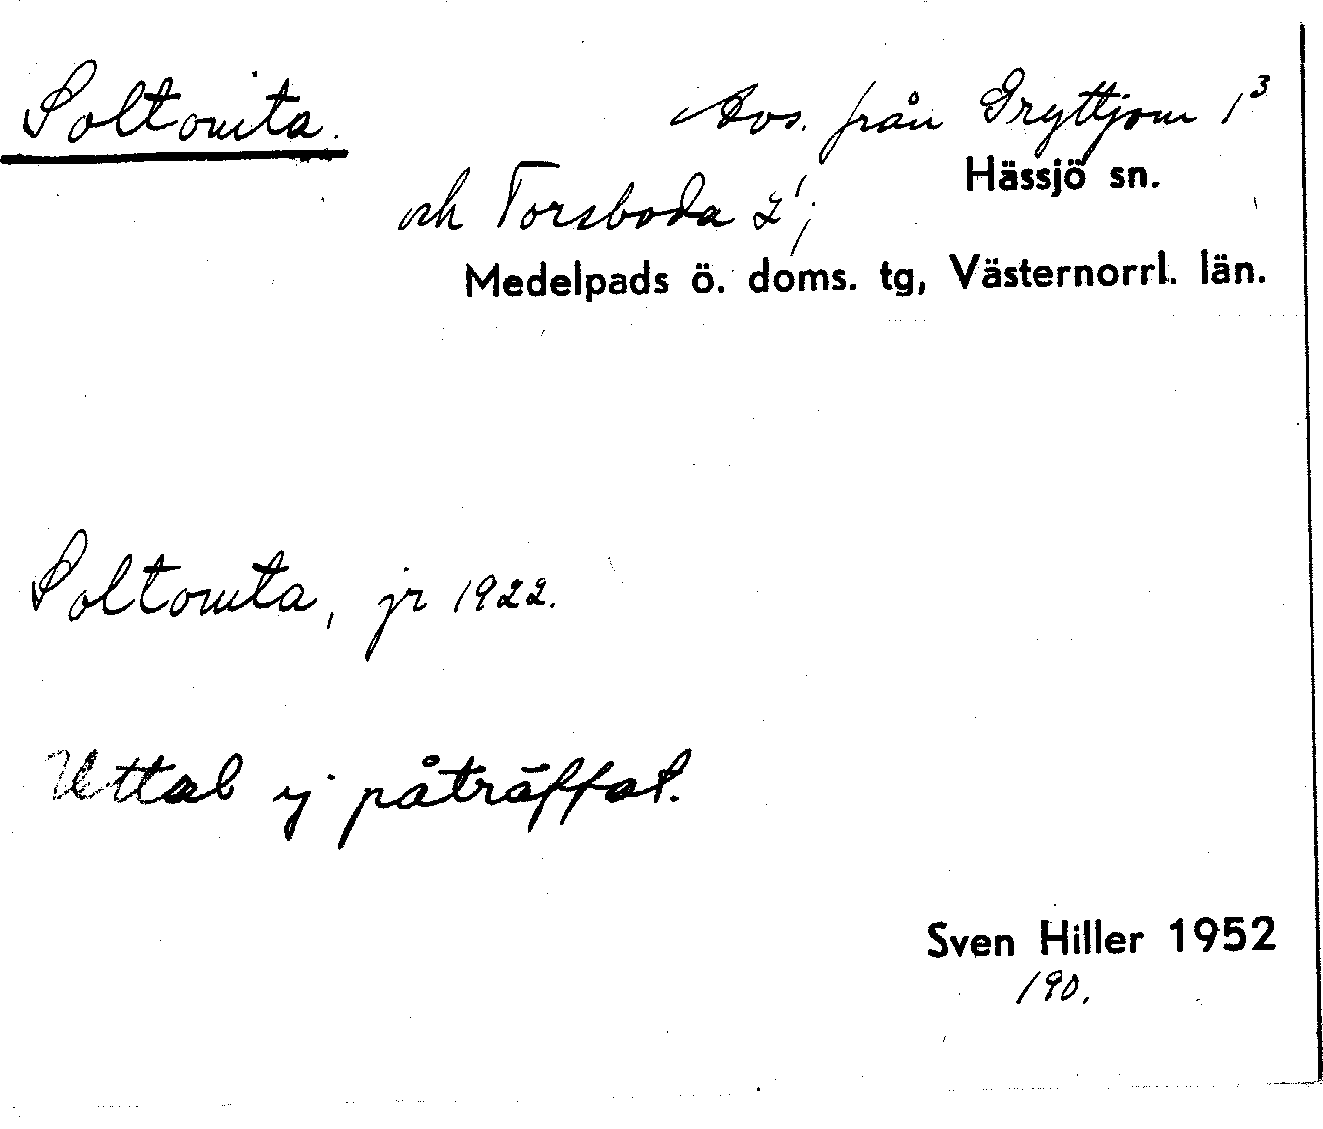 Soltomta.
Avs. från Gryttjom 1³
Hässjö sn.
och Torsboda 2¹;
Medelpads ö. doms. tg, Västernorrl. län.
Soltomta, jr 1922.
Uttal ej påträffat.
Sven Hiller 1952
190.